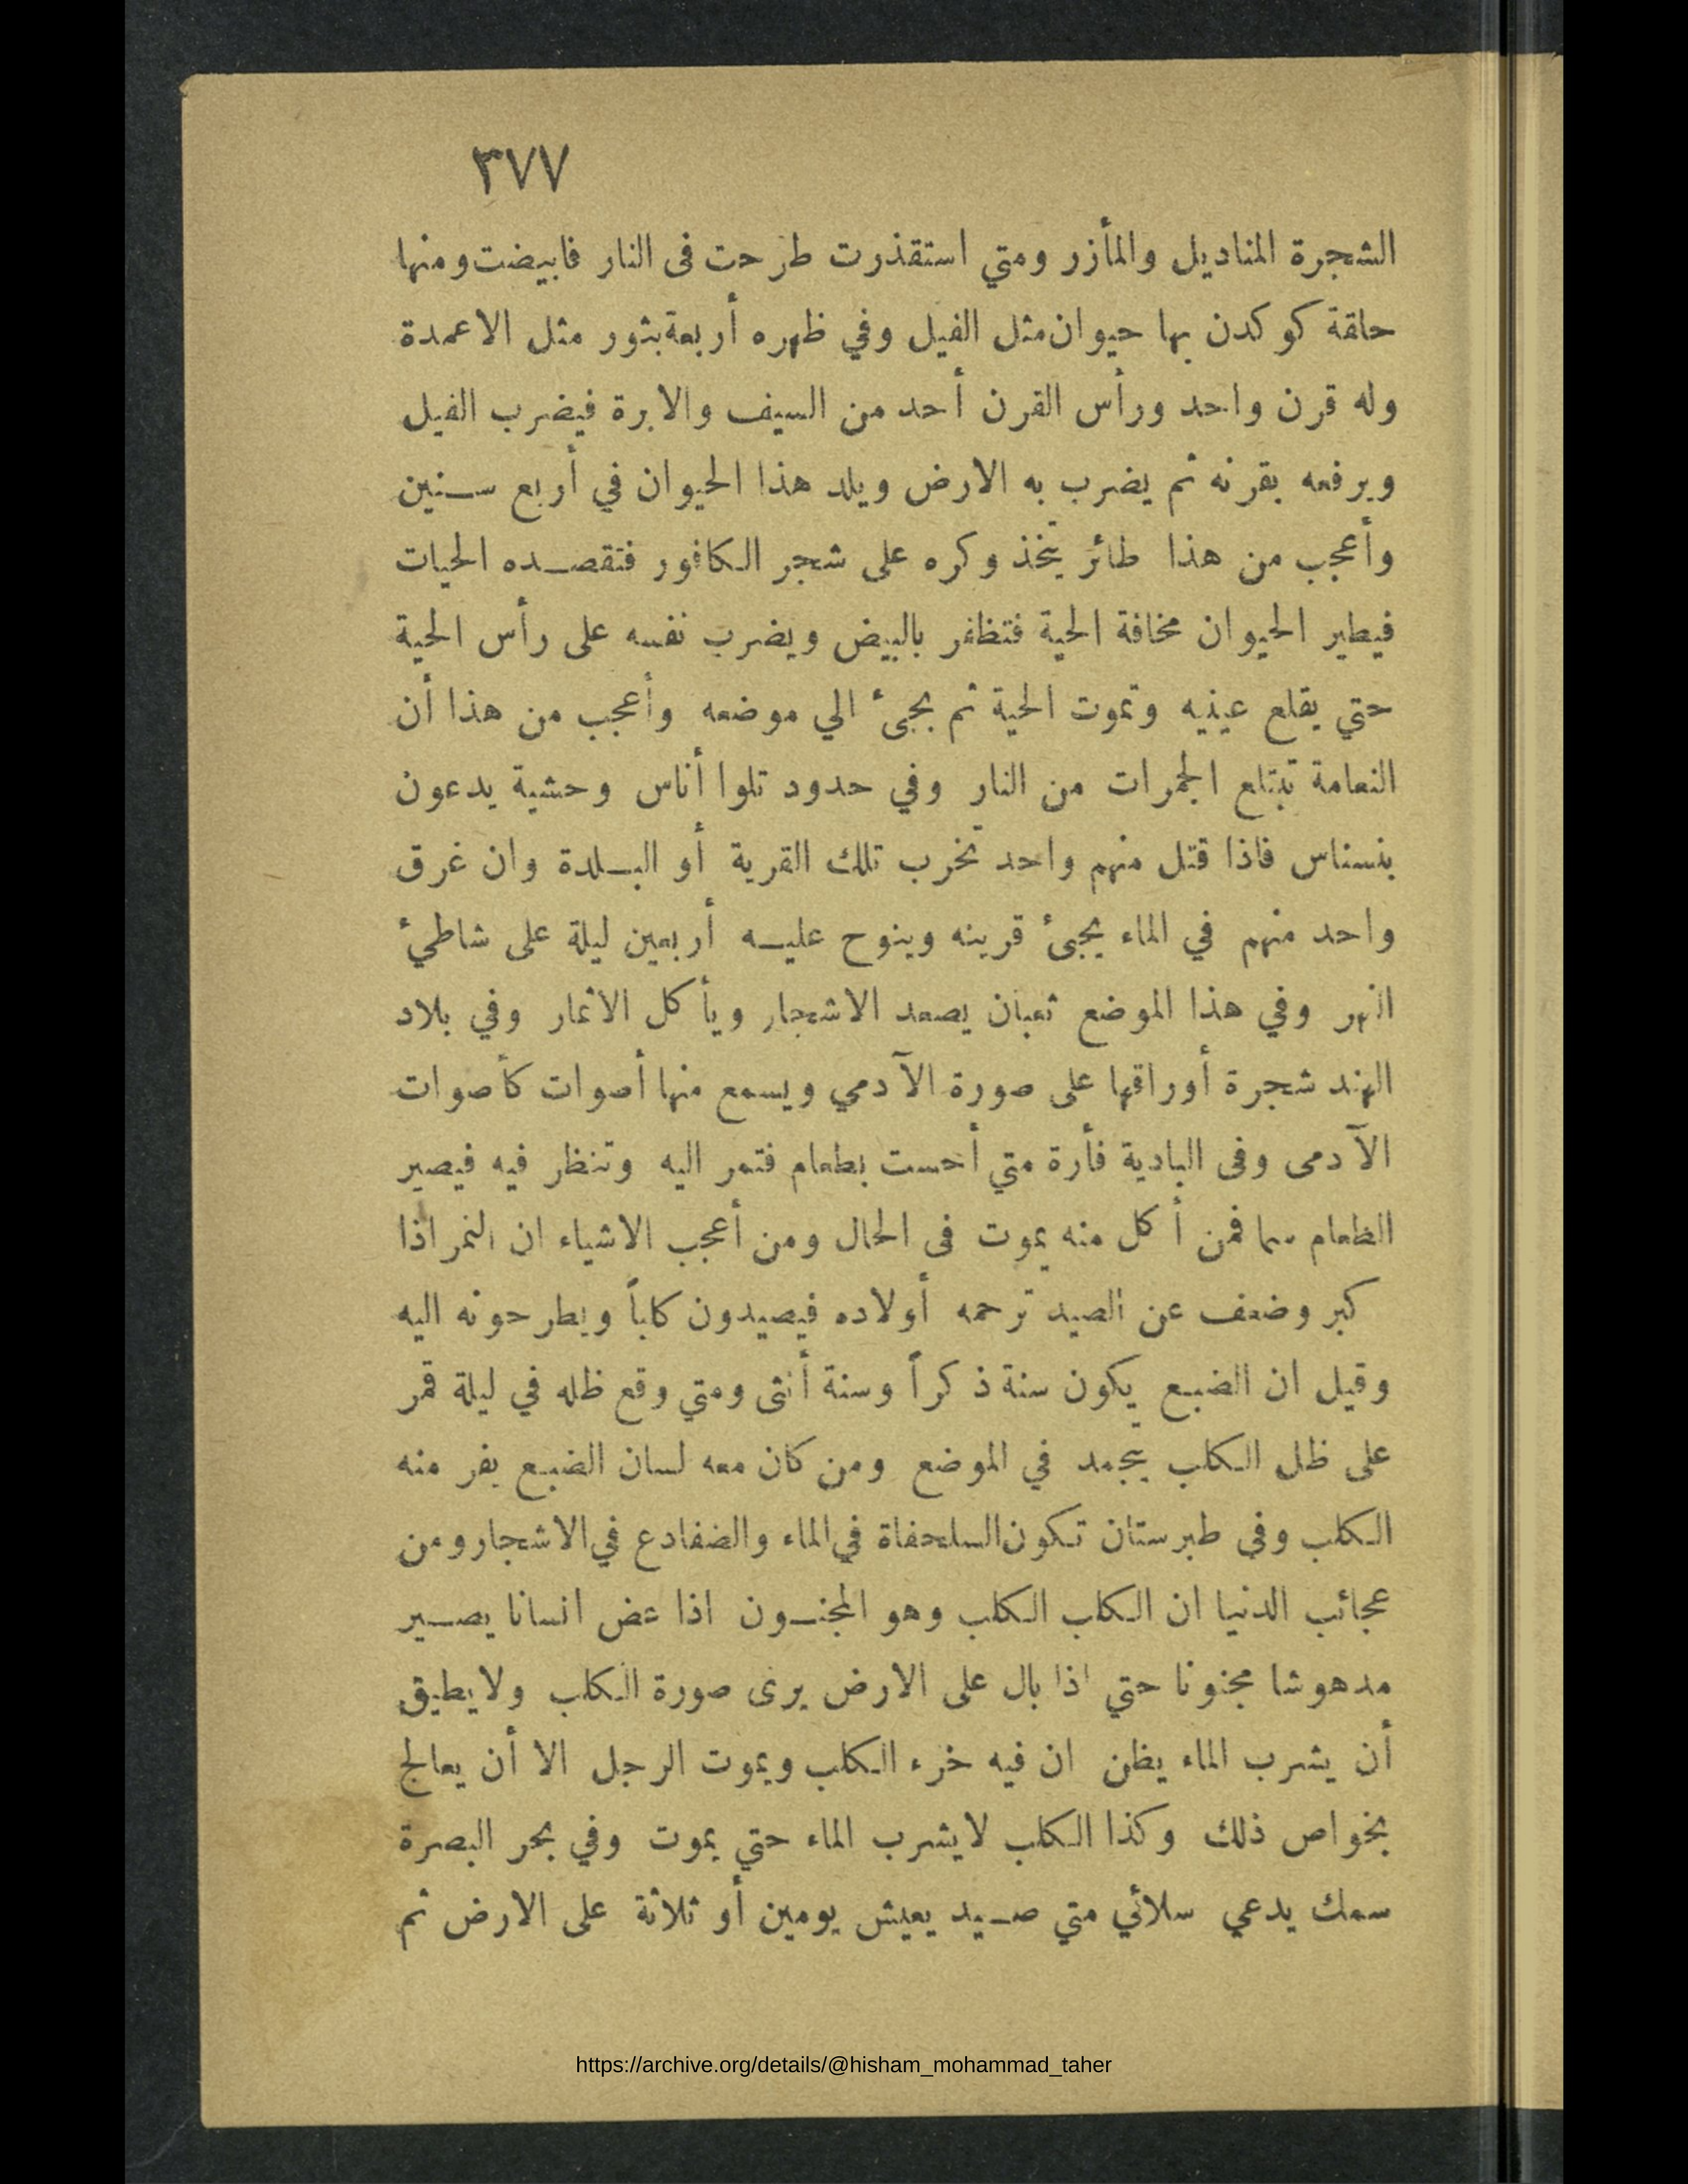 ٣٧٧
الشجرة المناديل والمأزر ومتي استقذرت طرحت فى النار فابيضت ومنها
حلقة كوكدن بها حيوان مثل الفيل وفي ظهره أربعة بثور مثل الاعمدة
وله قرن واحد ورأس القرن أحد من السيف والابرة فيضرب الفيل
ويرفعه بقرنه ثم يضرب به الارض ويلد هذا الحيوان في أربع سنين
وأعجب من هذا طائر يتخذ وكره على شجر الكافور فتقصده الحيات
فيطير الحيوان مخافة الحية فتظفر بالبيض ويضرب نفسه على رأس الحية
حتي يقلع عينيه وتموت الحية ثم يجىء الي موضعه وأعجب من هذا أن
النعامة تبتلع الجمرات من النار وفي حدود تلوا أناس وحشية يدعون
بنسناس فاذا قتل منهم واحد تخرب تلك القرية أو البلدة وان غرق
واحد منهم في الماء يجىء قرينه وينوح عليه أربعين ليلة على شاطىء
النهر وفي هذا الموضع ثعبان يصعد الاشجار ويأكل الاثمار وفي بلاد
الهند شجرة أوراقها على صورة الآدمي ويسمع منها أصوات كأصوات
الآدمى وفى البادية فأرة متي أحست بطعام فتمر اليه وتنظر فيه فيصير
الطعام سما فمن أكل منه يموت فى الحال ومن أعجب الاشياء ان النمر اذا
كبر وضعف عن الصيد ترحمه أولاده فيصيدون كلباً ويطرحونه اليه
وقيل ان الضبع يكون سنة ذكراً وسنة أنثى ومتي وقع ظله في ليلة قمر
على ظل الكلب يتجمد في الموضع ومن كان معه لسان الضبع يفر منه
الكلب وفى طبرستان تكون السلحفاة في الماء والضفادع في الاشجار ومن
عجائب الدنيا ان الكلب الكلب وهو المجنون اذا عض انسانا يصير
مدهوشا مجنونا حتي اذا بال على الارض يرى صورة الكلب ولا يطيق
أن يشرب الماء يظن ان فيه خرء الكلب ويموت الرجل الا أن يعالج
بخواص ذلك وكذا الكلب لا يشرب الماء حتي يموت وفي بحر البصرة
سمك يدعي سلائي متي صيد يعيش يومين أو ثلاثة على الارض ثم
https://archive.org/details/@hisham_mohammad_taher